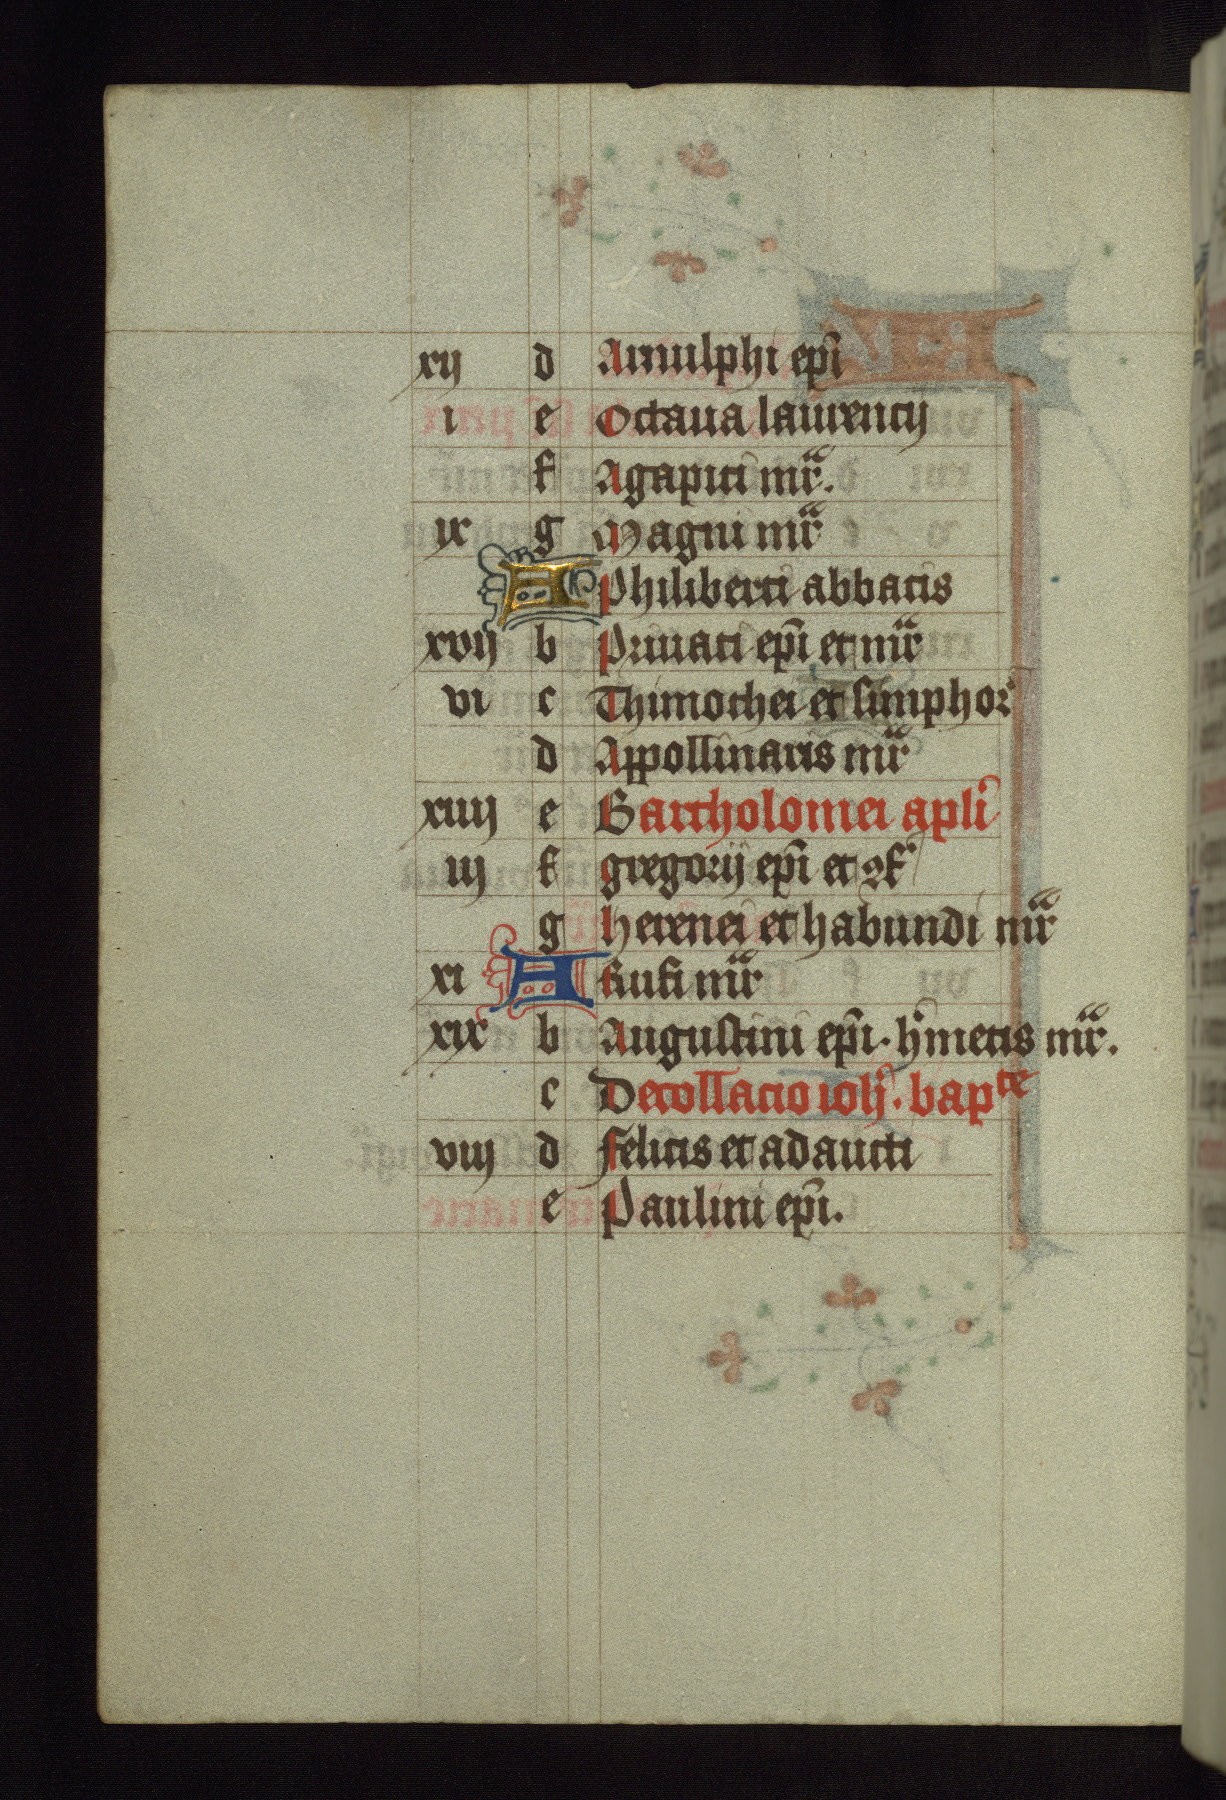 xij d Arnulphi ep̄i
i e Octaua laurencij
f Agapiti mr̄.
ix g Magni mr̄
A Philiberti abbatis
xvij b Priuati ep̄i et mr̄
vi c Thimothei et simphor
d Appollinaris mr̄
xiiij e Bartholomei apl̄i
iij f gregorij ep̄i et ꝯf
g herenei et habundi mr̄
xi A Rufi mr̄
xix b Augustini ep̄i. h̓metis mr̄.
c Decollacio ioh̄. bapᵗᵉ
viij d felicis et adaucti
e Paulini ep̄i.